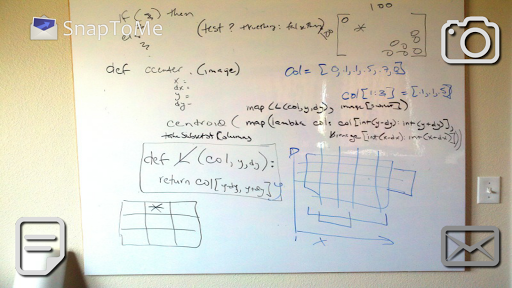 SnapToMe
if ( ) then
(test ? truething : falsething)
100
0
*
def center (image)
x =
dx =
y =
dy =
col = [0,.1,.1,.5,.7,0]
col[1:3] = [.1,.1,.5]
map (L(col,y,dy), image[
centroid (map(lambda col: col[int(y-dy): int(y+dy)],
image[int(x-dx): int(x+dx)]))
take subset of columns
def L (col, y, dy):
return col[y-dy, y+dy]
*
x